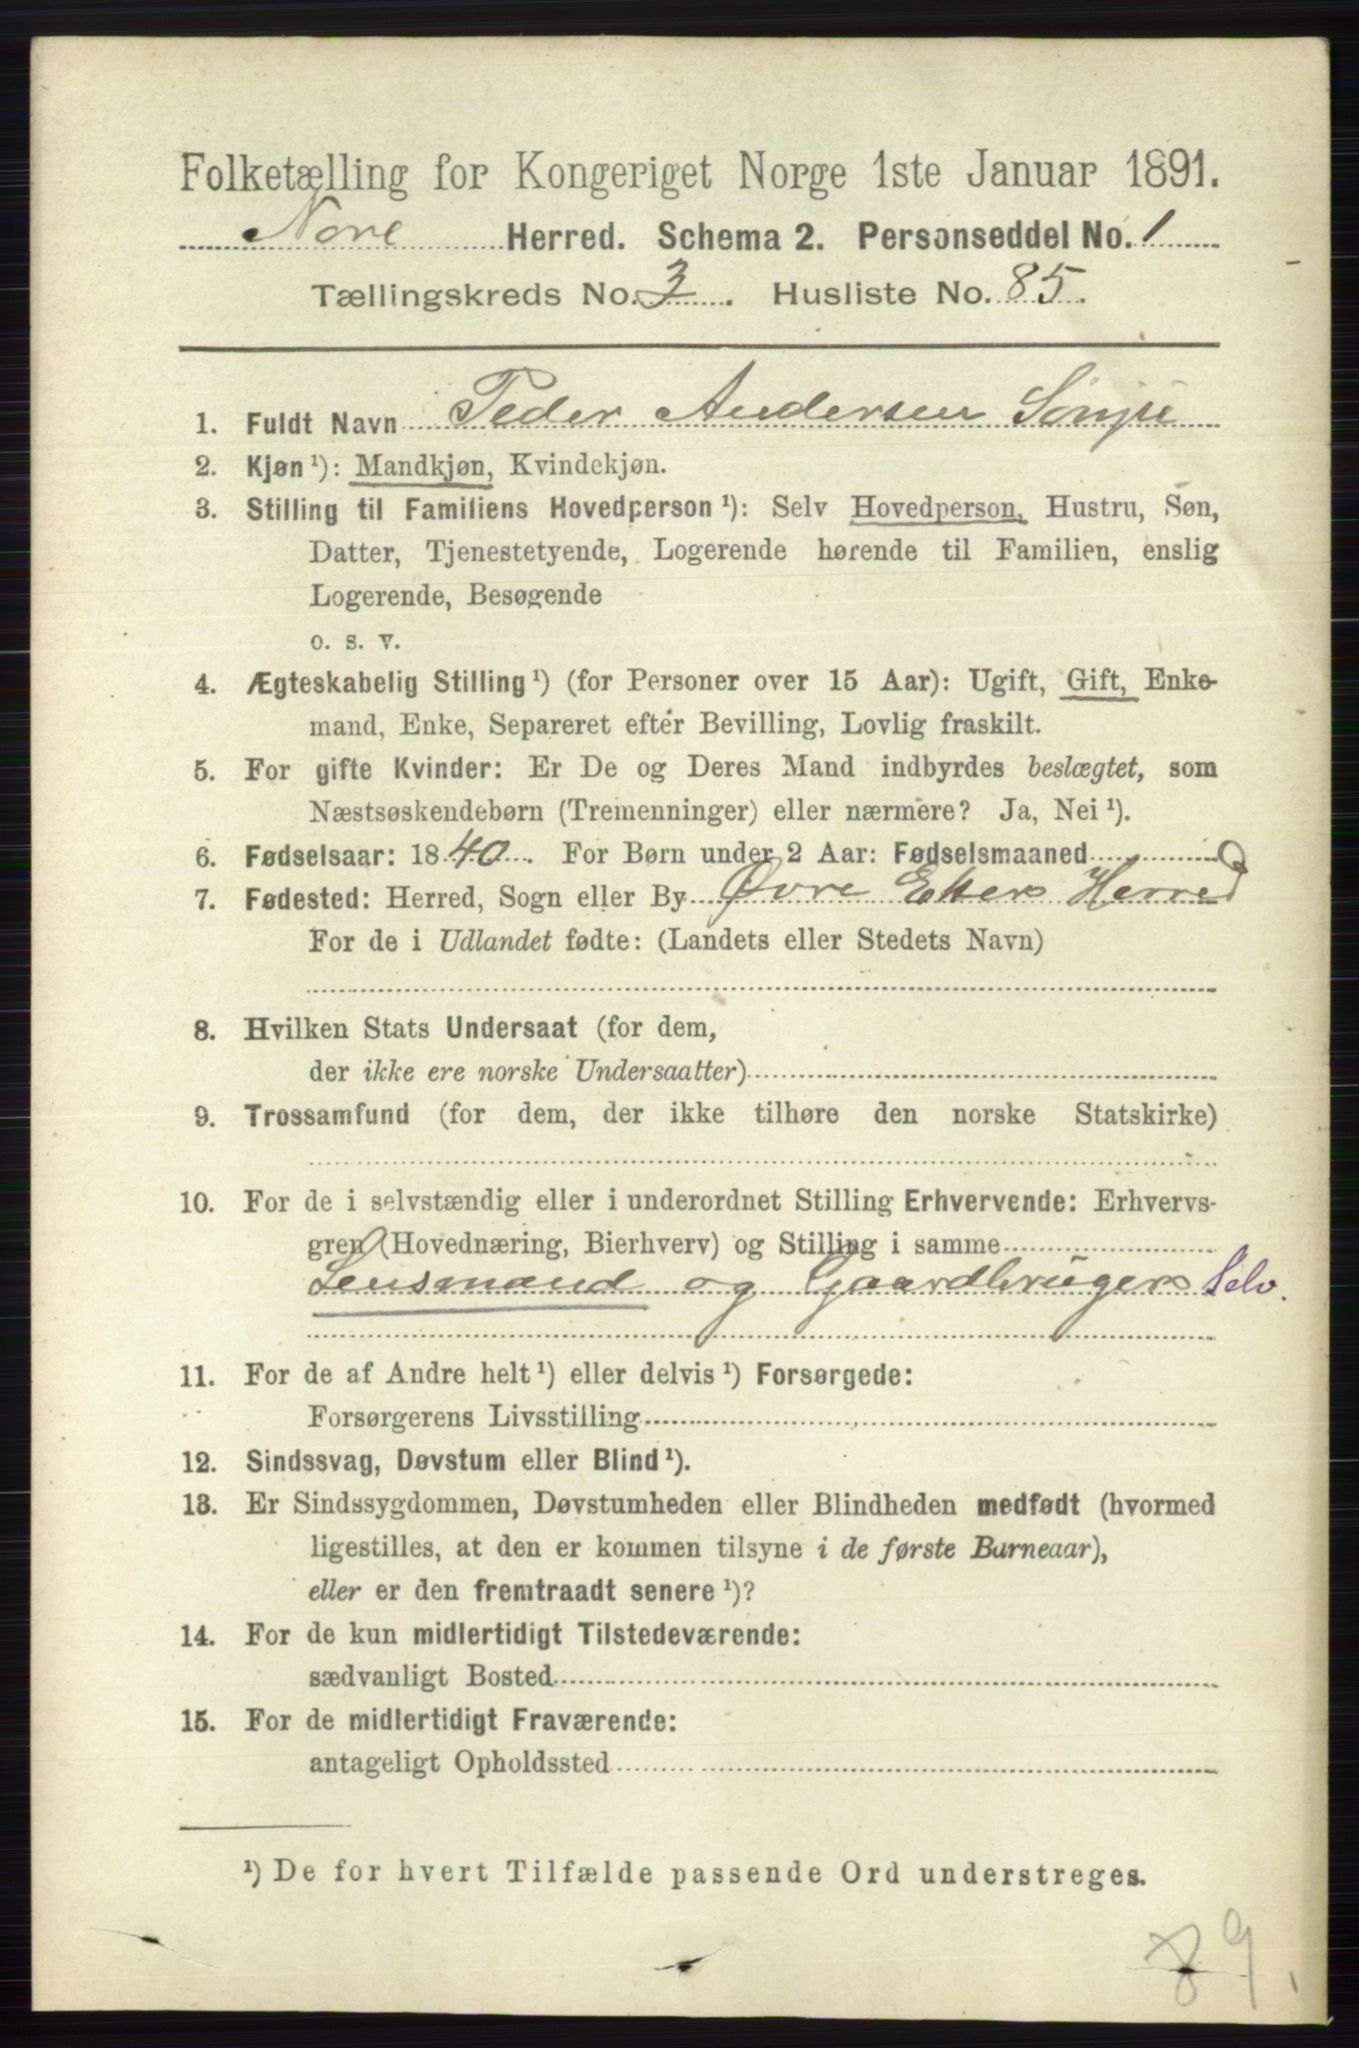 Folketælling for Kongeriget Norge 1ste Januar 1891.
Nore Herred. Schema 2. Personseddel No. 1
Tællingskreds No. 3. Husliste No. 85.
1. Fuldt Navn Peder Andersen
2. Kjøn ¹): Mandkjøn, Kvindekjøn.
3. Stilling til Familiens Hovedperson ¹): Selv Hovedperson, Hustru, Søn,
Datter, Tjenestetyende, Logerende hørende til Familien, enslig
Logerende, Besøgende
o. s. v.
4. Ægteskabelig Stilling ¹) (for Personer over 15 Aar): Ugift, Gift, Enke-
mand, Enke, Separeret efter Bevilling, Lovlig fraskilt.
5. For gifte Kvinder: Er De og Deres Mand indbyrdes beslægtet, som
Næstsøskendebørn (Tremenninger) eller nærmere? Ja, Nei ¹).
6. Fødselsaar: 1840. For Børn under 2 Aar: Fødselsmaaned
7. Fødested: Herred, Sogn eller By Øvre Ekers Herred
For de i Udlandet fødte: (Landets eller Stedets Navn)
8. Hvilken Stats Undersaat (for dem,
der ikke ere norske Undersaatter)
9. Trossamfund (for dem, der ikke tilhøre den norske Statskirke)
10. For de i selvstændig eller i underordnet Stilling Erhvervende: Erhvervs-
gren (Hovednæring, Bierhverv) og Stilling i samme
Lensmand og Gaardbruger Selv.
11. For de af Andre helt ¹) eller delvis ¹) Forsørgede:
Forsørgerens Livsstilling
12. Sindssvag, Døvstum eller Blind ¹).
13. Er Sindssygdommen, Døvstumheden eller Blindheden medfødt (hvormed
ligestilles, at den er kommen tilsyne i de første Barneaar),
eller er den fremtraadt senere ¹)?
14. For de kun midlertidigt Tilstedeværende:
sædvanligt Bosted
15. For de midlertidigt Fraværende:
antageligt Opholdssted
¹) De for hvert Tilfælde passende Ord understreges.
89